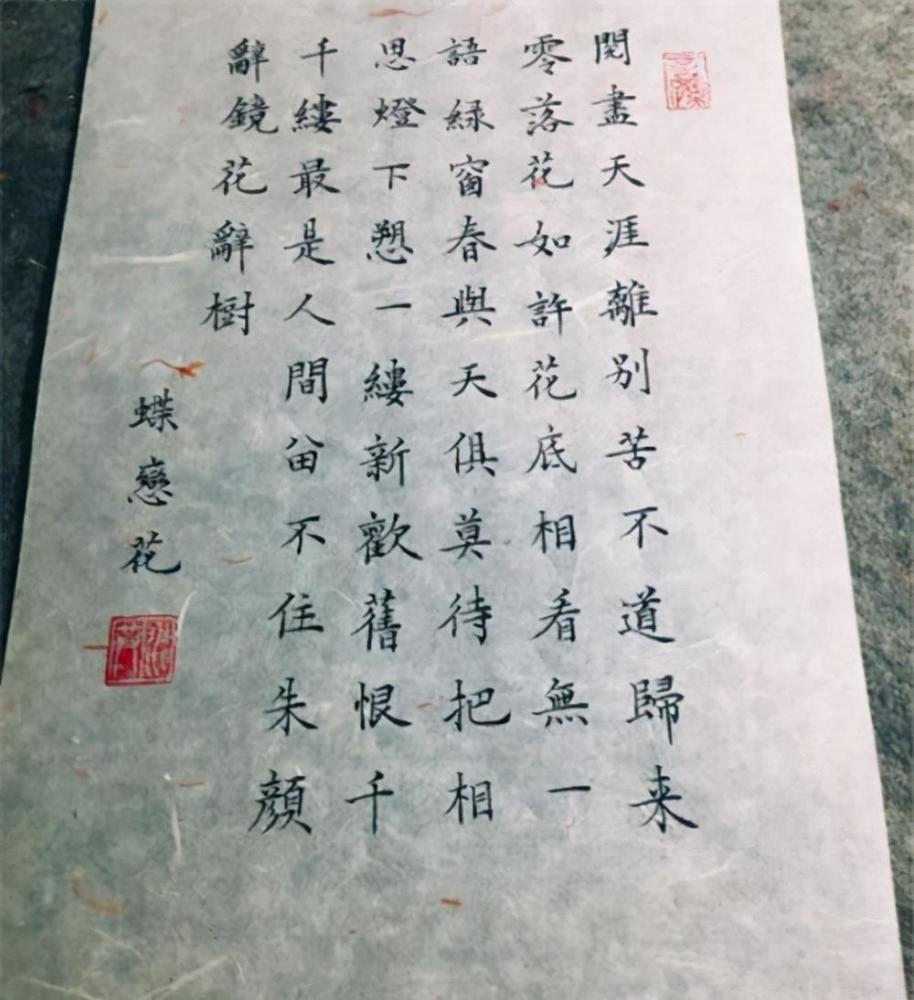 閱盡天涯離別苦不道歸来
零落花如許花底相看無一
語緑窗春與天俱莫待把相
思燈下愬一縷新歡舊恨千
千縷最是人間留不住朱顔
辭鏡花辭樹
蝶戀花